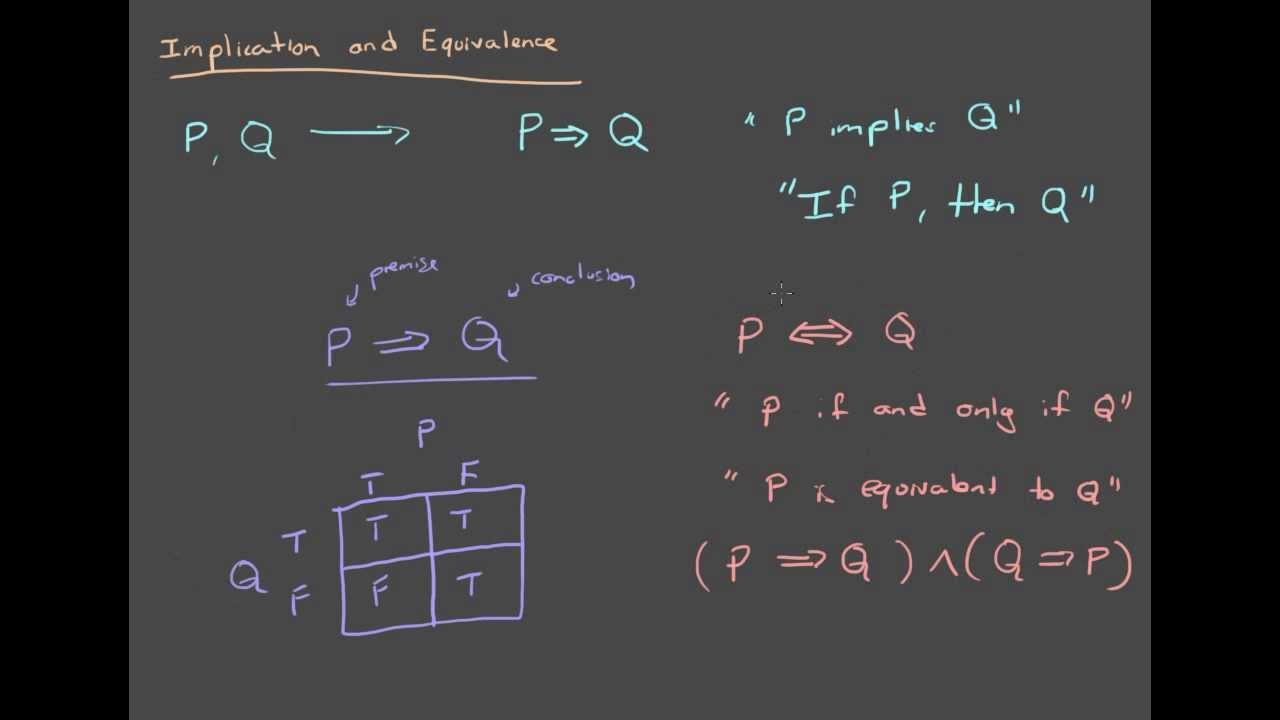 Implication and Equivalence
P, Q ⟶ P ⇒ Q " P implies Q"
"If P, then Q"
premise conclusion
P ⇒ Q
P ⇔ Q
" P if and only if Q"
P
T F
" P is equivalent to Q"
T T T
Q
F F T
(P ⇒ Q) ∧ (Q ⇒ P)